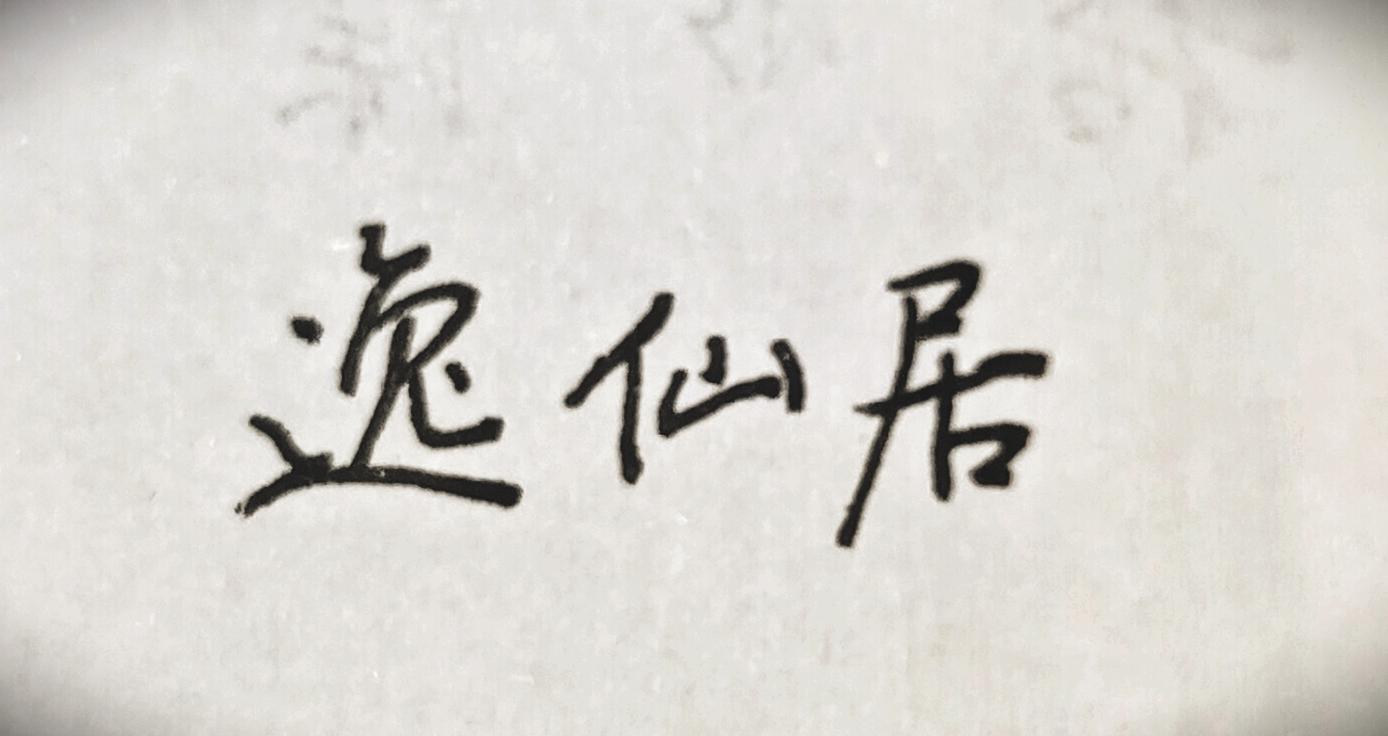 逸仙居